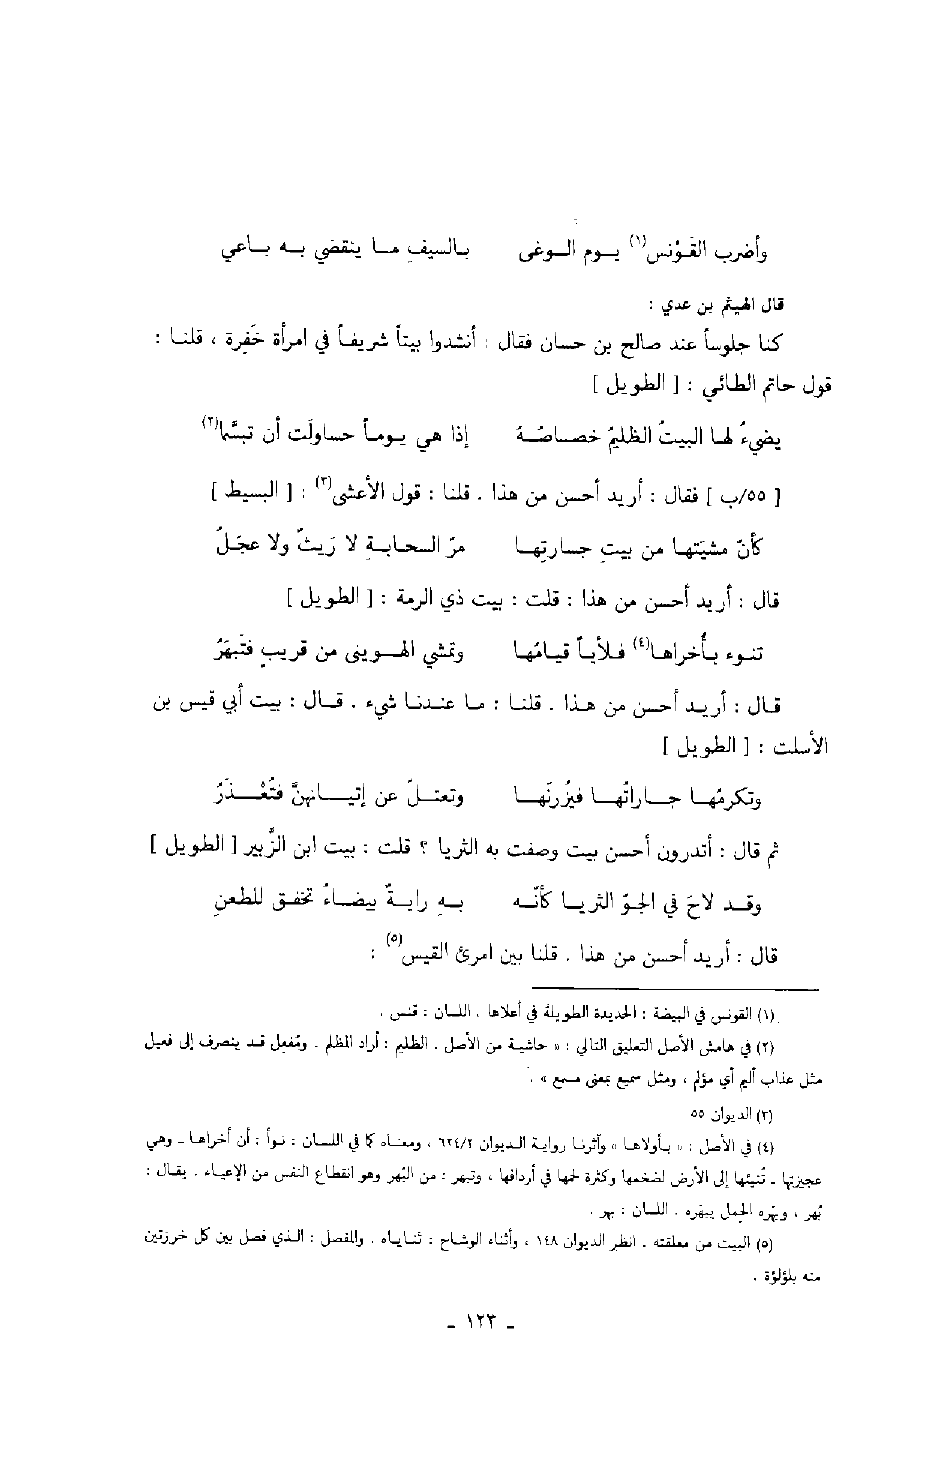 وأضرب القَوْنس(١) يـوم الـوغى بـالسيفِ مـا ينقضي بـه بـاعي
قال الهيثم بن عدي :
كنا جلوساً عند صالح بن حسان فقال : أنشدوا بيتاً شريفاً في امرأة خَفِرة ، قلنا :
قول حاتم الطائي : [ الطويل ]
يضيءُ لها البيتُ الظليمُ خصاصُهُ إذا هي يوماً حاولَت أن تبسَّما(٢)
[ ٥٥/ب ] فقال : أريد أحسن من هذا . قلنا : قول الأعشى(٣) : [ البسيط ]
كأنّ مشيَتها من بيتِ جارتِها مرّ السحابةِ لا رَيثٌ ولا عجَلُ
قال : أريد أحسن من هذا : قلت : بيت ذي الرمة : [ الطويل ]
تنوء بأُخراها(٤) فلأياً قيامُها وتمشي الهوينى من قريبٍ فتَبهَرُ
قال : أريد أحسن من هذا . قلنا : ما عندنا شيء . قال : بيت أبي قيس بن
الأسلت : [ الطويل ]
وتكرمُها جاراتُها فيَزُرنَها وتعتلّ عن إتيانهنَّ فتُعْذَرُ
ثم قال : أتدرون أحسن بيت وصفت به الثريا ؟ قلت : بيت ابن الزَّبير [ الطويل ]
وقد لاحَ في الجوّ الثريا كأنّه بهِ رايةٌ بيضاءُ تخفق للطعنِ
قال : أريد أحسن من هذا . قلنا بين امرئ القيس(٥) :
(١) القونس في البيضة : الحديدة الطويلة في أعلاها . اللسان : قنس .
(٢) في هامش الأصل التعليق التالي : « حاشية من الأصل . الظليم : أراد المظلم . ومُفعِل قد ينصرف إلى فعيل
مثل عذاب أليم أي مؤلم ، ومثل سميع بمعنى مسمع » .
(٣) الديوان ٥٥
(٤) في الأصل : « بأولاها » وآثرنا رواية الديوان ٦٢٤/٢ ، ومعناه كما في اللسان : نوأ : أن أخراها - وهي
عجيزتها - تُنيئها إلى الأرض لضخمها وكثرة لحمها في أردافها ، وتبهر : من البُهر وهو انقطاع النفس من الإعياء . يقال :
بُهر ، وبهَره الحِمل يبهَره . اللسان : بهر .
(٥) البيت من معلقته . انظر الديوان ١٤٨ ، وأثناء الوشاح : ثناياه . والمفصل : الذي فصل بين كل خرزتين
منه بلؤلؤة .
- ١٢٣ -